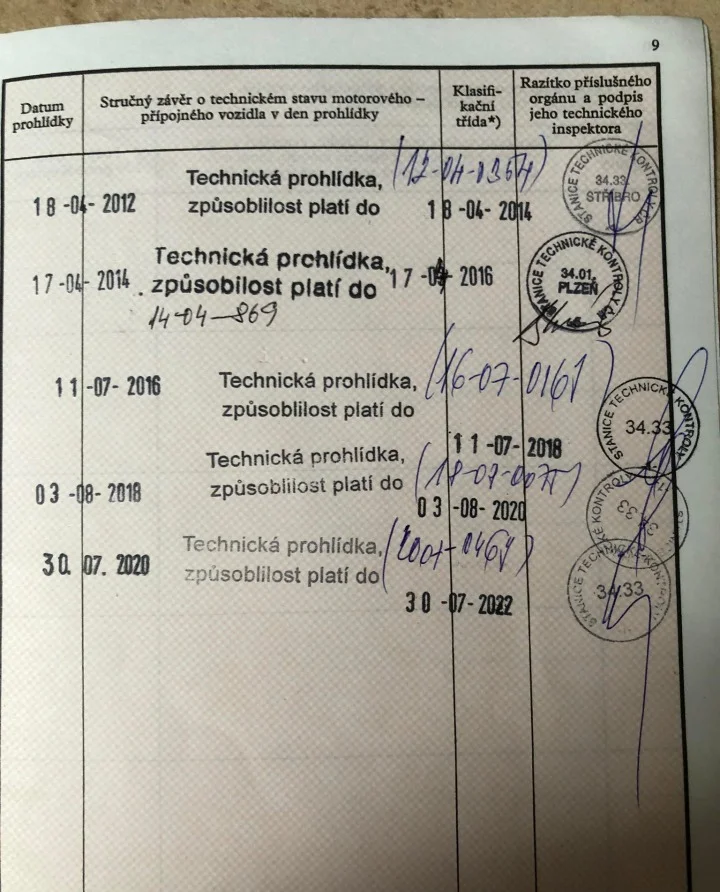 9
Datum prohlídky
Stručný závěr o technickém stavu motorového – přípojného vozidla v den prohlídky
Klasifi-
kační
třída*)
Razítko příslušného
orgánu a podpis
jeho technického
inspektora
Technická prohlídka, (12-04-0364)
18 -04- 2012 způsoblilost platí do 18 -04- 2014
STANICE TECHNICKÉ KONTROLY
34.33
STŘÍBRO
Technická prohlídka,
17 -04- 2014 . způsobilost platí do 17 -04- 2016
14-04-869
STANICE TECHNICKÉ KONTROLY
34.01.
PLZEŇ
11 -07- 2016 Technická prohlídka, (16-07-0161)
způsoblilost platí do
11 -07- 2018
STANICE TECHNICKÉ KONTROLY
34.33
Technická prohlídka,
03 -08- 2018 způsoblilost platí do
03 -08- 2020
KONTROLY
33
30. 07. 2020 Technická prohlídka,
způsoblilost platí do
30 -07- 2022
STANICE TECHNICKÉ KONTROLY
34.33